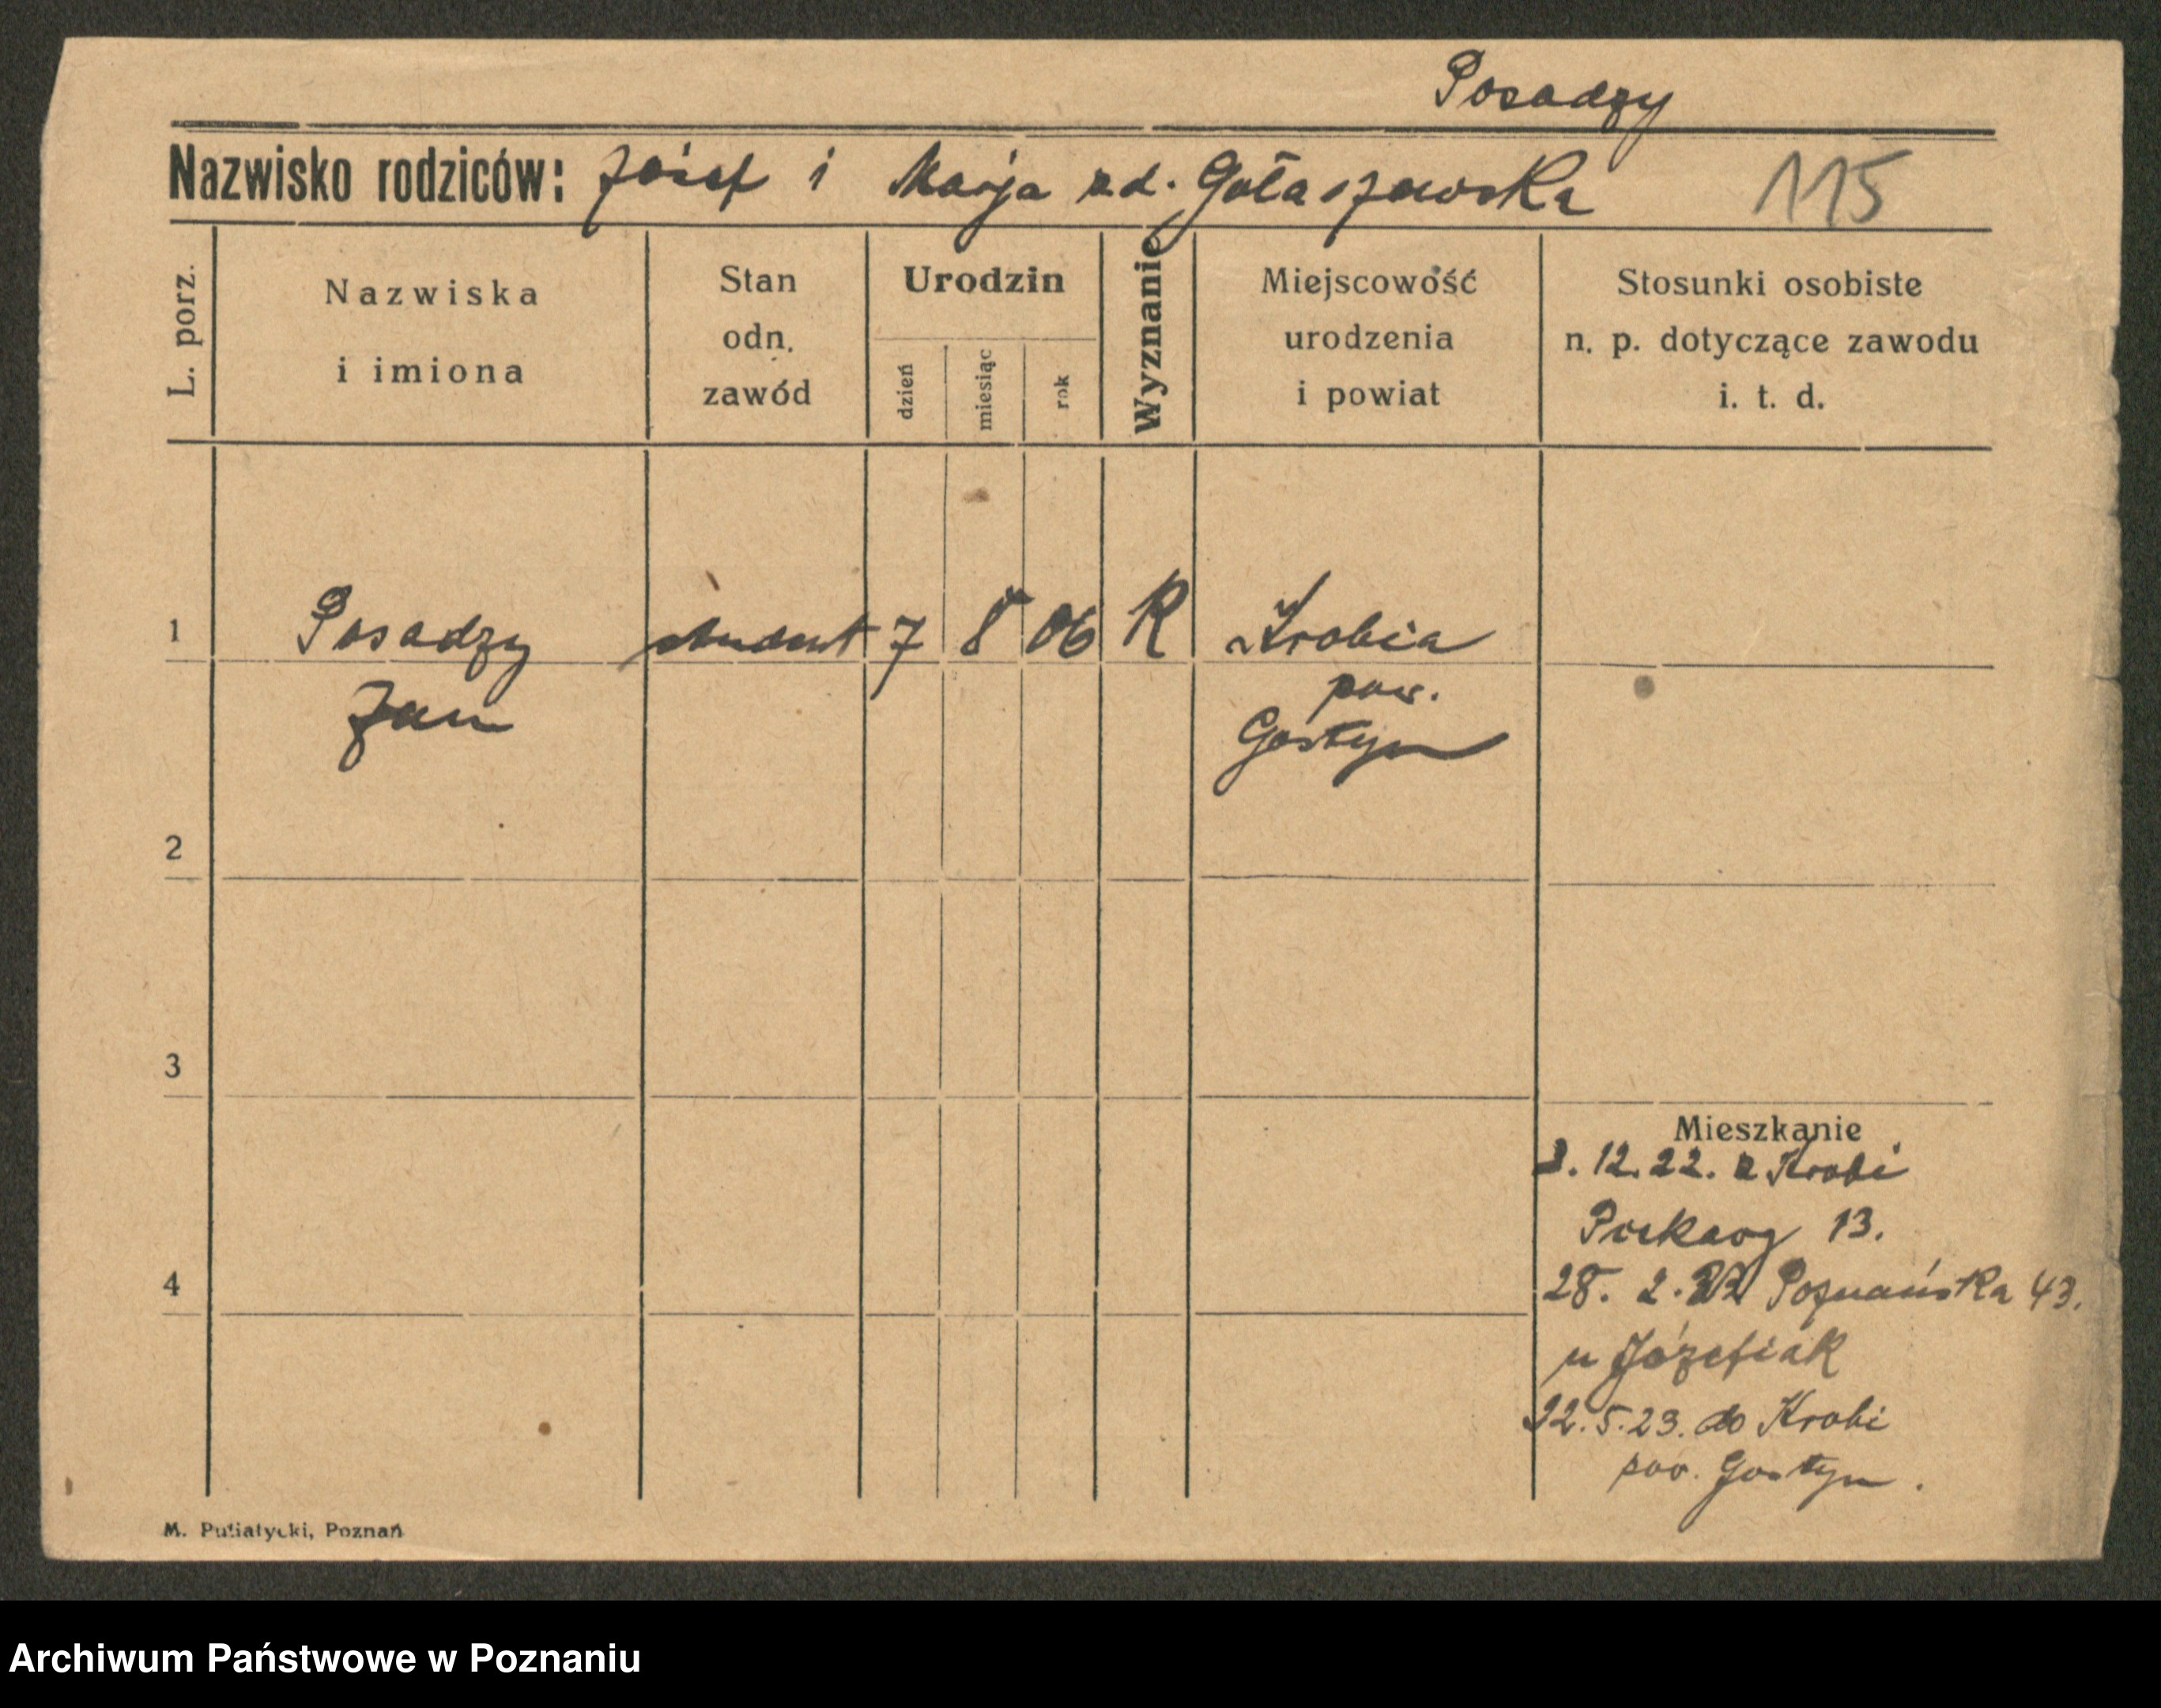 Posadzy
Nazwisko rodziców: Józef i Marja zd. Gołaszewska 115
L. porz.
Nazwiska
i imiona
Stan
odn.
zawód
Urodzin
dzień
miesiąc
rok
Wyznanie
Miejscowość
urodzenia
i powiat
Stosunki osobiste
n. p. dotyczące zawodu
i. t. d.
1 Posadzy student 7 8 06 R Krobia
Jan pow.
Gostyn
2
3
Mieszkanie
12.22. z Krobi
13.
4
28. 2. Poznańska 43.
u Józefiak
22.5.23. do Krobi
pow. Gostyn.
M. Putiatycki, Poznań
Archiwum Państwowe w Poznaniu